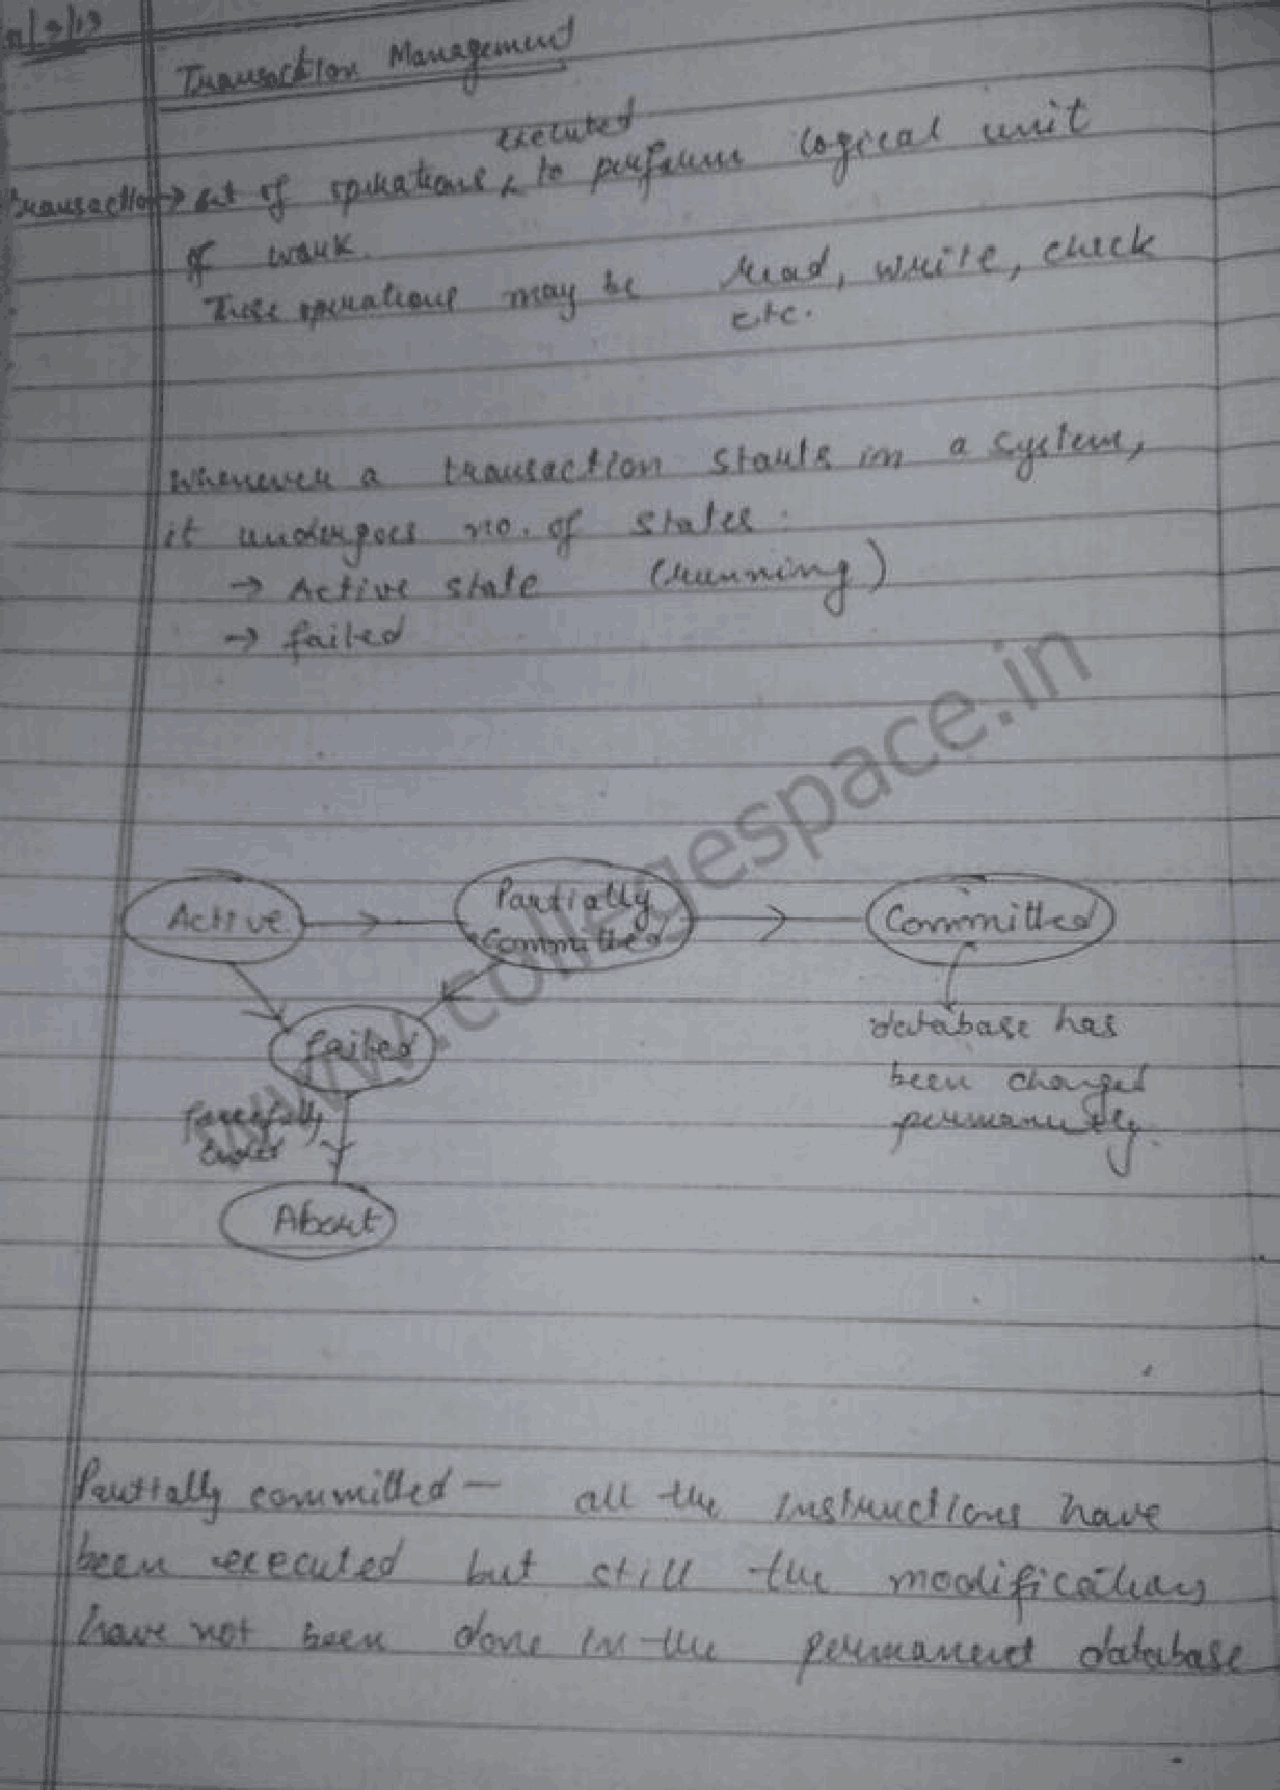 Transaction Management
executed
Transaction → set of operations ^ to perform logical unit
of work.
These operations may be read, write, check
etc.
Whenever a transaction starts in a system,
it undergoes no. of states:
→ Active state (running)
→ failed
www.collegespace.in
Active
Partially
Committed
Committed
failed
database has
been changed
permanently.
forcefully
Abort
Partially committed — all the instructions have
been executed but still the modifications
have not been done in the permanent database